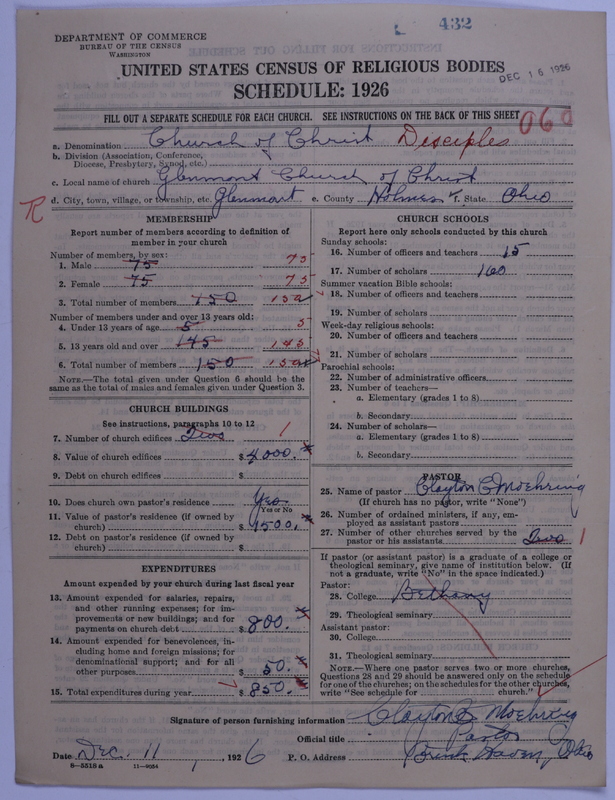 432
DEPARTMENT OF COMMERCE
BUREAU OF THE CENSUS
WASHINGTON
UNITED STATES CENSUS OF RELIGIOUS BODIES
DEC 16 1926
SCHEDULE: 1926
FILL OUT A SEPARATE SCHEDULE FOR EACH CHURCH. SEE INSTRUCTIONS ON THE BACK OF THIS SHEET
060
a. Denomination Church of Christ Disciples
b. Division (Association, Conference, Diocese, Presbytery, Synod, etc.)
c. Local name of church Glenmont Church of Christ
R d. City, town, village, or township, etc. Glenmont e. County Holmes f. State Ohio
MEMBERSHIP
Report number of members according to definition of member in your church
Number of members, by sex:
1. Male 75 75
2. Female 75 75
3. Total number of members 150 150
Number of members under and over 13 years old:
4. Under 13 years of age 5 5
5. 13 years old and over 145 145
6. Total number of members 150 150
NOTE.—The total given under Question 6 should be the same as the total of males and females given under Question 3.
CHURCH BUILDINGS
See instructions, paragraphs 10 to 12
7. Number of church edifices Two 1
8. Value of church edifices $ 4000.
9. Debt on church edifices $
10. Does church own pastor's residence Yes
Yes or No
11. Value of pastor's residence (if owned by church) $ 1500.
12. Debt on pastor's residence (if owned by church) $
EXPENDITURES
Amount expended by your church during last fiscal year
13. Amount expended for salaries, repairs, and other running expenses; for improvements or new buildings; and for payments on church debt $ 800.
14. Amount expended for benevolences, including home and foreign missions; for denominational support; and for all other purposes $ 50.
15. Total expenditures during year $ 850.
CHURCH SCHOOLS
Report here only schools conducted by this church
Sunday schools:
16. Number of officers and teachers 15
17. Number of scholars 160
Summer vacation Bible schools:
18. Number of officers and teachers
19. Number of scholars
Week-day religious schools:
20. Number of officers and teachers
21. Number of scholars
Parochial schools:
22. Number of administrative officers
23. Number of teachers—
a. Elementary (grades 1 to 8)
b. Secondary
24. Number of scholars—
a. Elementary (grades 1 to 8)
b. Secondary
PASTOR
25. Name of pastor Clayton C Moehring
(If church has no pastor, write "None")
26. Number of ordained ministers, if any, employed as assistant pastors
27. Number of other churches served by the pastor or his assistants Two 1
If pastor (or assistant pastor) is a graduate of a college or theological seminary, give name of institution below. (If not a graduate, write "No" in the space indicated.)
Pastor:
28. College Bethany
29. Theological seminary
Assistant pastor:
30. College
31. Theological seminary
NOTE.—Where one pastor serves two or more churches, Questions 28 and 29 should be answered only on the schedule for one of the churches; on the schedules for the other churches, write "See schedule for church."
Signature of person furnishing information Clayton C Moehring
Official title Pastor
Date Dec. 11, 1926 P. O. Address Brink Haven, Ohio
8—5518 a 11—9034